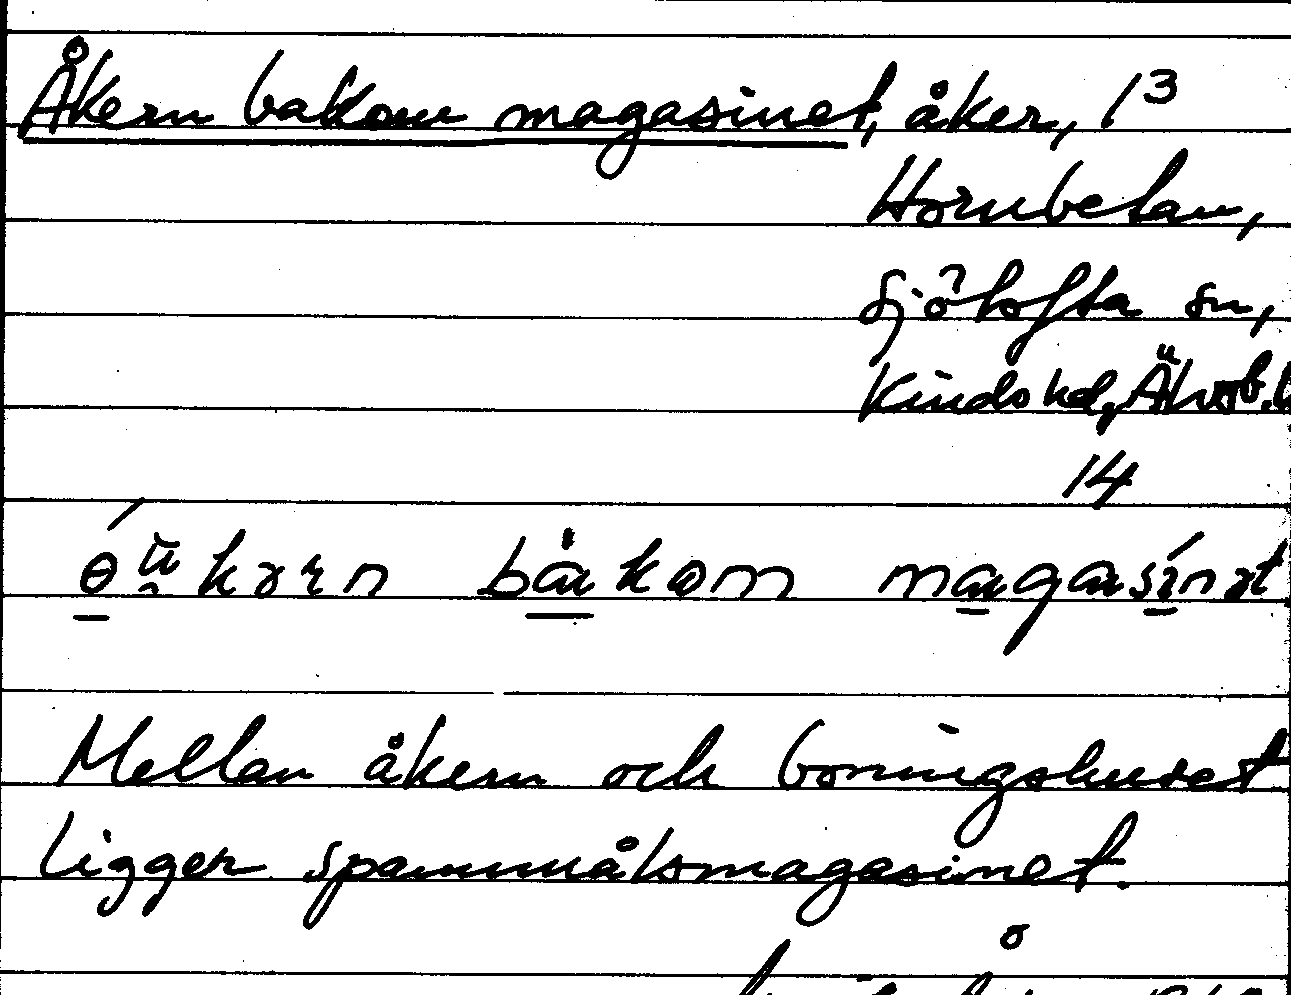 Åkern bakom magasinet, åker, 1³
Hornbetan,
Sjötofta sn,
Kinds hd, Älvsb. l
14
bakom magasinət
Mellan åkern och boningshuset
ligger spannmålsmagasinet.